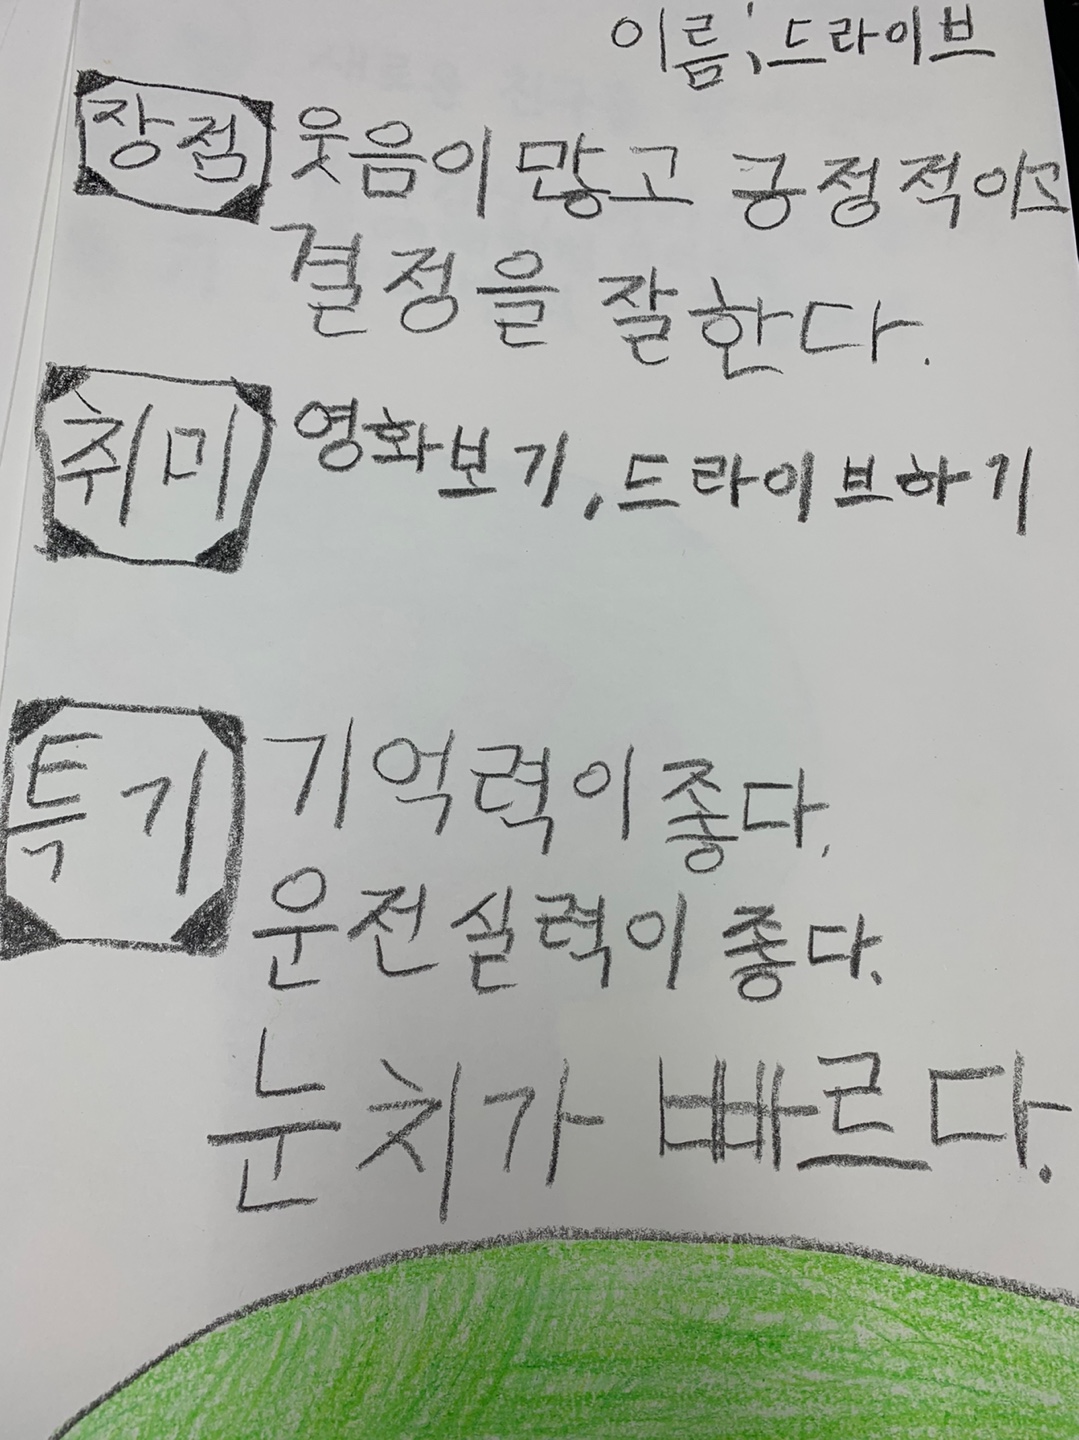 이름; 드라이브
장점 웃음이 많고 긍정적이고
결정을 잘한다.
취미 영화보기, 드라이브하기
특기 기억력이 좋다.
운전실력이 좋다.
눈치가 빠르다.